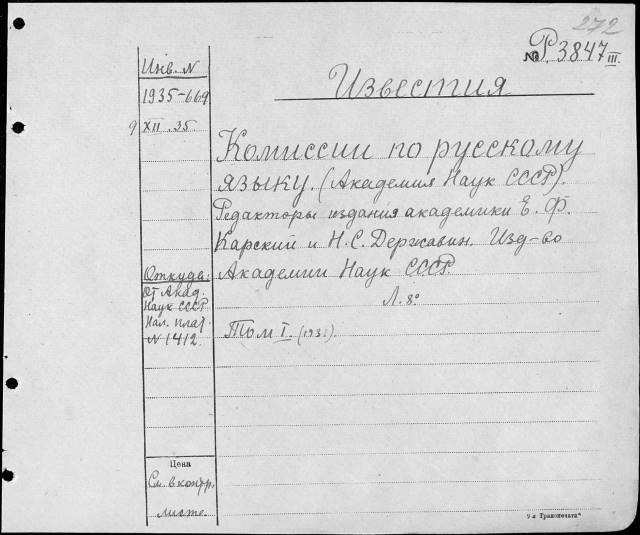 272
№ Р.3847 III.
Известия
Инв. N
1935-669
9 XII. 35.
Комиссии по русскому
языку. (Академия Наук СССР).
Редакторы издания академики Е. Ф.
Карский и Н. С. Державин. Изд-во
Академии Наук СССР.
Л. 8°
Том I. (1931).
Откуда:
От Акад.
Наук СССР
Нал. плат
N 1412.
Цена
См. в контр.
листе.
9-я Транспечать"